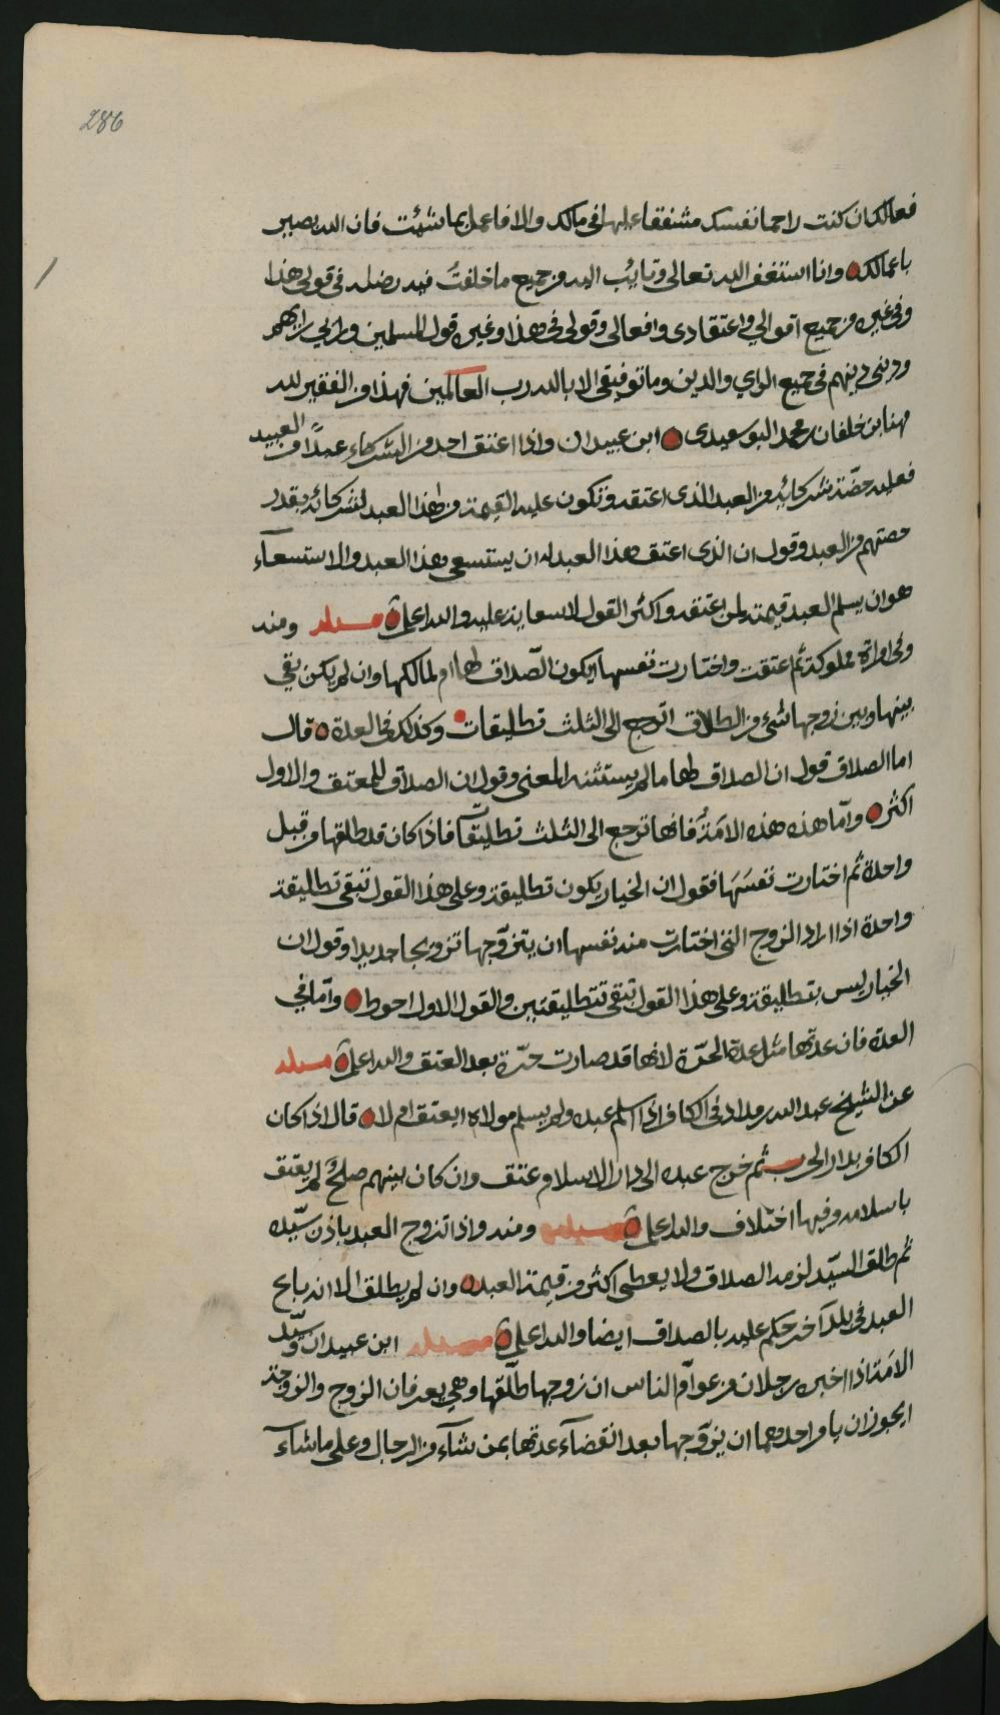 286
فعالك ان كنت راحما نفسك مشفقا عليها في مالك والا فاعمل بما شئت فان الله بصير
باعمالك وانا استغفر الله تعالى وتايب اليه من جميع ما خالفت فيه رضاه في قولي هذا
وفي غيره من جميع اقوالي واعتقادى وافعالى وقولى في هذا وغيره قول المسلمين ورايي رايهم
ودينى دينهم في جميع الراي والدين وما توفيقي الا بالله رب العالمين فهذا من الفقير لله
مهنا بن خلفان بن محمد البوسعيدى ابن عبيدان واذا اعتق احد من الشركاء عبدًا من العبيد
فعليه حصّة شركائه من العبد الذى اعتقه وتكون عليه القيمة من هذا العبد لشركائه بقدر
حصتهم من العبد وقول ان الذى اعتق هذا العبد له ان يستسعى هذا العبد والاستسعآء
هو ان يسلم العبد قيمته لمن اعتقه واكثر القول لا سعاية عليه والله اعلم مسئلة ومنه
وفي امراة مملوكة ثم اعتقت واختارت نفسها ايكون الصّداق لها ام لمالكها وان لم يكن بقي
بينها وبين زوجها شئ من الطلاق اترجع الى الثلث تطليقات وكذلك في العدة قال
اما الصداق قول ان الصداق لها ما لم يستثنه المعتق وقول ان الصداق للمعتق والاول
اكثر وآما هذه هذه الامَةُ فانها ترجع الى الثلث تطليقات فاذا كان قد طلقها من قبل
واحدة ثم اختارت نفسَهَا فقول ان الخيار يكون تطليقة وعلى هذا القول تبقى تطليقة
واحدة اذا اراد الزوج التي اختارت منه نفسها ان يتزوّجها تزويجا جديدا وقول ان
الخيار ليس بتطليقة وعلى هذا القول تبقى تتطليقتين والقول الاول احوط وآما في
العدة فان عدتها مثل عدة الحرّة لانها قد صارت حرّة بعد العتق والله اعلم مسئلة
عن الشيخ عبد الله بن مداد في الكافر اذا اسلم عبده ولم يسلم مولاه ايعتق ام لا قال اذا كان
الكافر بدار الحرب ثم خرج عبده الى دار الاسلام عتق وان كان بينهم صلحٌ لم يعتق
باسلامه وفيها اختلاف والله اعلم مسئلة ومنه واذا تزوج العبد باذن سيّده
ثم طلق السيّد لزمه الصداق ولا يعطى اكثر من قيمة العبد وان لم يطلق الا انه باع
العبد في بلد آخر حكم عليه بالصداق ايضا والله اعلم مسئلة ابن عبيدان وسيّد
الامَة اذا اخبره رجلان من عوآم الناس ان زوجها طلّقها وهي يعرفان الزوج والزوجة
ايجوز ان يامر احدهما ان يزوّجها بعد انقضآء عدتها بمن شآء من الرجال وعلى ما شآء